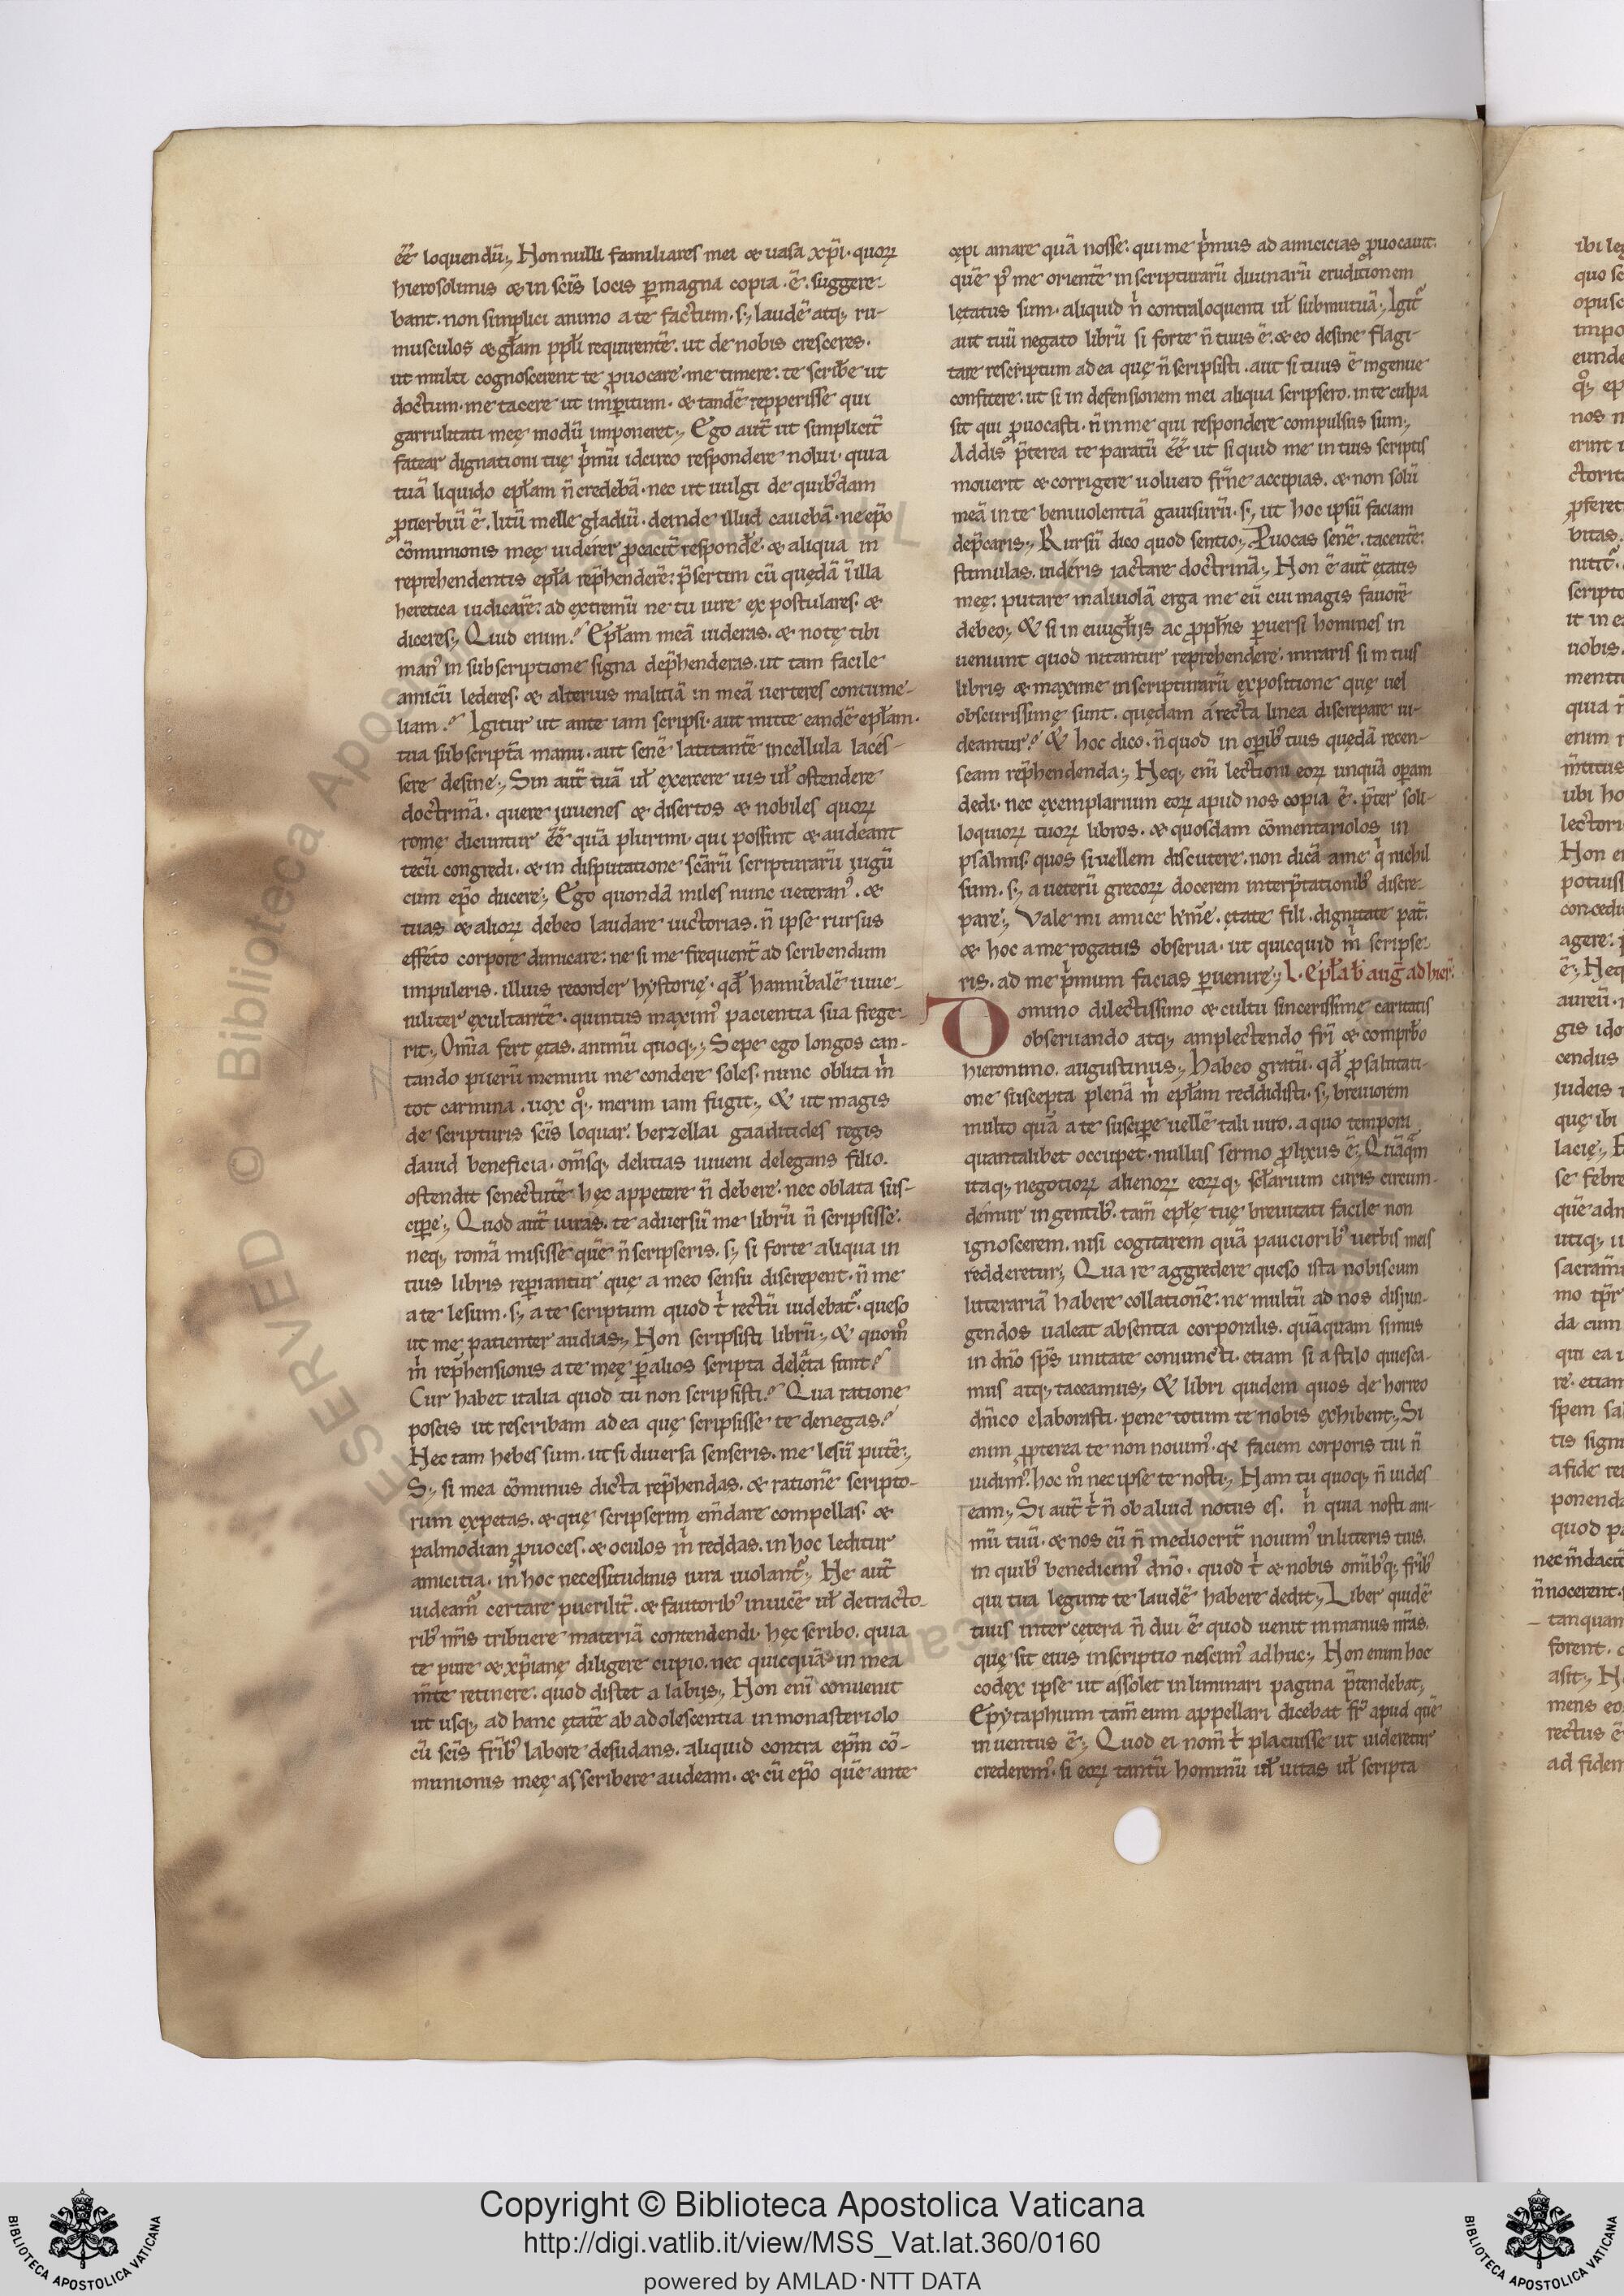 ēē loquendū. Non nulli familiares mei & uasa xp̄i. quoꝝ
hierosolimis & in sc̄is locis ꝑmagna copia .ē. suggere-
bant. non simplici animo a te factum. s; laudē atq; ru-
musculos & gl̄am pp̄li requirente. ut de nobis cresceres.
ut multi cognoscerent te ꝓuocare. me timere. te scribe ut
doctum. me tacere ut imꝑitum. & tandē repperisse qui
garrulitati meę modū imponeret. Ego aut̄ ut simplicit̄
fatear dignationi tuę p̄mū idcirco respondere nolui. quia
tuā liquido ep̄lam n̄ credebā. nec ut uulgi de quibꝰdam
ꝓuerbiū ē. litū melle gladiū. deinde illud cauebā. ne ep̄o
cōmunionis meę uiderer ꝓcacit̄ respond̄e. & aliqua in
reprehendentis ep̄la rep̄hendere. p̄sertim cū quędā ī illa
heretica iudicarē. ad extremū ne tu iure expostulares. &
diceres. Quid enim? Ep̄lam meā uideras. & notę tibi
manꝰ in subscriptione signa dep̄henderas. ut tam facile
amicū lederes. & alterius malitiā in meā uerteres contume-
liam? Igitur ut ante iam scripsi. aut mitte eandē ep̄lam.
tua subscripta manu. aut senē latitantē in cellula laces-
sere desine. Sin aut̄ tuā ul̄ exercere uis ul̄ ostendere
doctrinā. quere iuuenes & disertos & nobiles quoꝝ
rome dicuntur ēē quā plurimi. qui possint & audeant
tecū congredi. & in disputatione sc̄arū scripturarū iugū
cum ep̄o ducere. Ego quondā miles nunc ueteranꝰ. &
tuas & alioꝝ debeo laudare uictorias. n̄ ipse rursus
effęto corpore dimicare. ne si me frequent̄ ad scribendum
impuleris. illius recorder hystorię. qd̄ hannibalē iuue-
niliter exultante. quintus maximꝰ pacientia sua frege-
rit. Om̄ia fert ętas. animū quoq;. Sepe ego longos can-
tando puerū memini me condere soles. nunc oblita m̄
tot carmina. uox q̊; merim iam fugit. & ut magis
de scripturis sc̄is loquar. berzellai gaaditides regis
dauid beneficia. om̄sq; delitias iuueni delegans filio.
ostendit senectutē hęc appetere n̄ debere. nec oblata sus-
ciꝑe. Quod aut̄ iuras. te aduersū me librū n̄ scripsisse.
neq; romā misisse quē n̄ scripseris. s; si forte aliqua in
tuis libris reꝑiantur quę a meo sensu discrepent. n̄ me
a te lesum. s; a te scriptum quod t̄ rectū uidebat̄. queso
ut me patienter audias. Non scripsisti librū. & quom̊
m̄ rep̄hensionis a te meę ꝑ alios scripta delęta sunt?
Cur habet italia quod tu non scripsisti? Qua ratione
poscis ut rescribam ad ea quę scripsisse te denegas?
Nec tam hebes sum. ut si diuersa senseris. me lesū putē.
S; si mea cōminus dicta rep̄hendas. & rationē scripto-
rum expetas. & quę scripserim em̄dare compellas. &
palmodian ꝓuoces. & oculos m̄ reddas. in hoc leditur
amicitia. in hoc necessitudinis iura uiolant̄. Ne aut̄
uideamꝰ certare puerilit̄. & fautoribꝰ inuicē ul̄ detracto-
ribꝰ nr̄is tribuere materiā contendendi. hęc scribo. quia
te pure & xp̄ianę diligere cupio. nec quicquā in mea
m̄te retinere. quod distet a labijs. Non eni conuenit
ut usq; ad hanc ętatē ab adolescentia in monasteriolo
cū sc̄is fr̄ibꝰ labore desudans. aliquid contra ep̄m cō-
munionis meę asscribere audeam. & cū ep̄o quē ante
cępi amare quā nosse. qui me p̄mus ad amicicias ꝓuocauit.
quē pꝰ me orientē in scripturarū diuinarū eruditionem
lętatus sum. aliquid n̄ contraloquenti ul̄ submutuā. Igit̄
aut tuū negato librū si forte n̄ tuus ē. & eo desine flagi-
tare rescriptum ad ea quę n̄ scripsisti. aut si tuus ē ingenue
confitere. ut si in defensionem mei aliqua scripsero. in te culpa
sit qui ꝓuocasti. n̄ in me qui respondere compulsus sum.
Addis p̄terea te paratū ēē ut si quid me in tuis scriptis
mouerit & corrigere uoluero fr̄ne accipias. & non solū
meā in te beniuolentiā gauisurū. s; ut hoc ipsū faciam
dep̄caris. Rursū dico quod sentio. Ꝓuocas senē. tacentē
stimulas. uideris iactare doctrinā. Non ē aut̄ ętatis
meę. putare maliuolā erga me eū cui magis fauorē
debeo. & si in euuḡl̄ijs ac ꝓph̄is ꝑuersi homines in
ueniunt quod nitantur reprehendere. miraris si in tuis
libris & maxime in scripturarū expositione quę uel
obscurissimę sunt. quędam a recta linea discrepare ui-
deantur? & hoc dico. n̄ quod in oꝑibꝰ tuis quędā recen-
seam rep̄hendenda. Neq; eni lectioni eoꝝ unquā oꝑam
dedi. nec exemplarium eoꝝ apud nos copia ē. p̄ter soli-
loquioꝝ tuoꝝ libros. & quosdam cōmentariolos in
psalmis. quos si uellem discutere. non dicā a me q̄ nichil
sum. s; a ueterū grecoꝝ docerem interp̄tationibꝰ discre-
pare. Vale mi amice k̄me. ętate fili. dignitate pat̄.
& hoc a me rogatus obserua. ut quicquid m̄ scripse-
ris. ad me p̄mum facias ꝑuenire. I. Ep̄la b̄ aug̅ ad hier̅.
Domino dilectissimo & cultu sincerissime caritatis
obseruando atq; amplectendo fr̄i & compr̄bo
hieronimo. augustinus. Habeo gratū. qd̄ ꝓ salutati-
one suscepta plenā m̄ ep̄lam reddidisti. s; breuiorem
multo quā a te susciꝑe uellē tali uiro. a quo tempori
quantalibet occupet. nullus sermo ꝓlixus ē. Quāq̄m
itaq; negotioꝝ alienoꝝ eoꝝq; scl̄arium curis circum-
demur ingentibꝰ. tam̄ ep̄lę tuę breuitati facile non
ignoscerem. nisi cogitarem quā pauciōribꝰ uerbis meis
redderetur. Qua re aggredere queso ista nobiscum
litterariā habere collationē. ne multū ad nos disiun-
gendos ualeat absentia corporalis. quāquam simus
in dn̄o sp̄s unitate coniuncti. etiam si a stilo quiesca-
mus atq; taceamus. & libri quidem quos de horreo
dn̄ico elaborasti. pene totum te nobis exhibent. Si
enim ꝓpterea te non nouimꝰ. qꝛ faciem corporis tui n̄
uidimꝰ. hoc m̊ nec ipse te nosti. Nam tu quoq; n̄ uides
eam. Si aut̄ t̄ n̄ ob aliud notus es. n̄ quia nosti ani-
mū tuū. & nos eū n̄ mediocrit̄ nouimꝰ in litteris tuis.
in quibꝰ benedicimꝰ dn̄o. quod t̄ & nobis om̄ibꝰq; fr̄ibꝰ
qui tua legunt te laudē habere dedit. Liber quidē
tuus inter cętera n̄ diu ē quod uenit in manus nr̄as.
quę sit eius inscriptio nescimꝰ adhuc. Non enim hoc
codex ipse ut assolet in liminari pagina p̄tendebat.
Epytaphium tam̄ eum appellari dicebat fr̄ apud quē
inuentus ē. Quod ei nom̄ t̄ placuisse ut uideretur
crederemꝰ. si eoꝝ tantū hominū ul̄ uitas ul̄ scripta
Copyright © Biblioteca Apostolica Vaticana
http://digi.vatlib.it/view/MSS_Vat.lat.360/0160
powered by AMLAD·NTT DATA